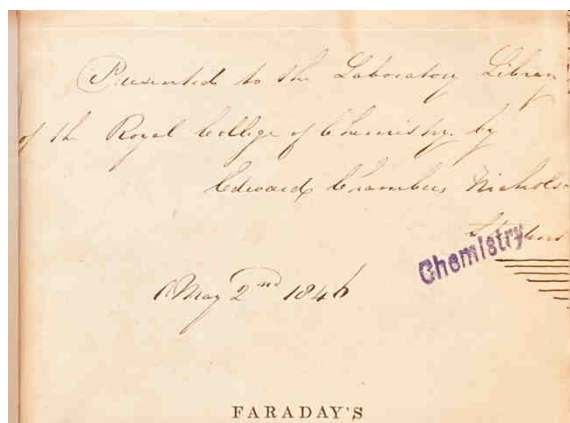 Presented to the Laboratory Library
of the Royal College of Chemistry by
Edward Chambers Nichols
Chemistry
May 2nd 1846
FARADAY'S